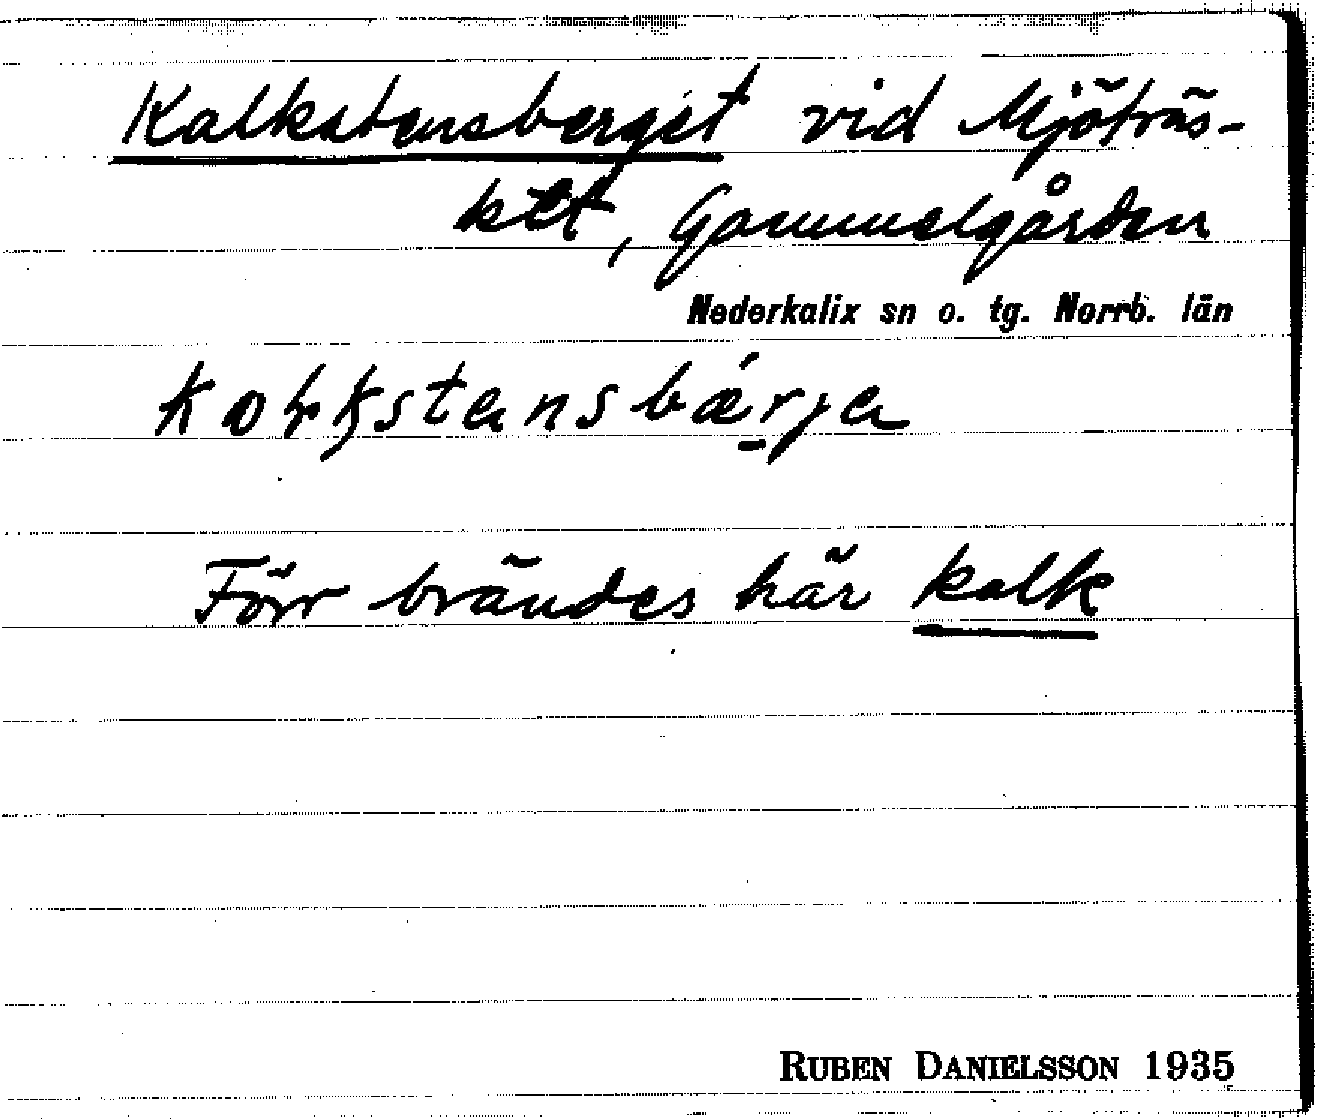 Kalkstensberget vid Mjöträs-
ket, Gammelgården
Nederkalix sn o. tg. Norrb. län
Förr brändes här kalk
RUBEN DANIELSSON 1935